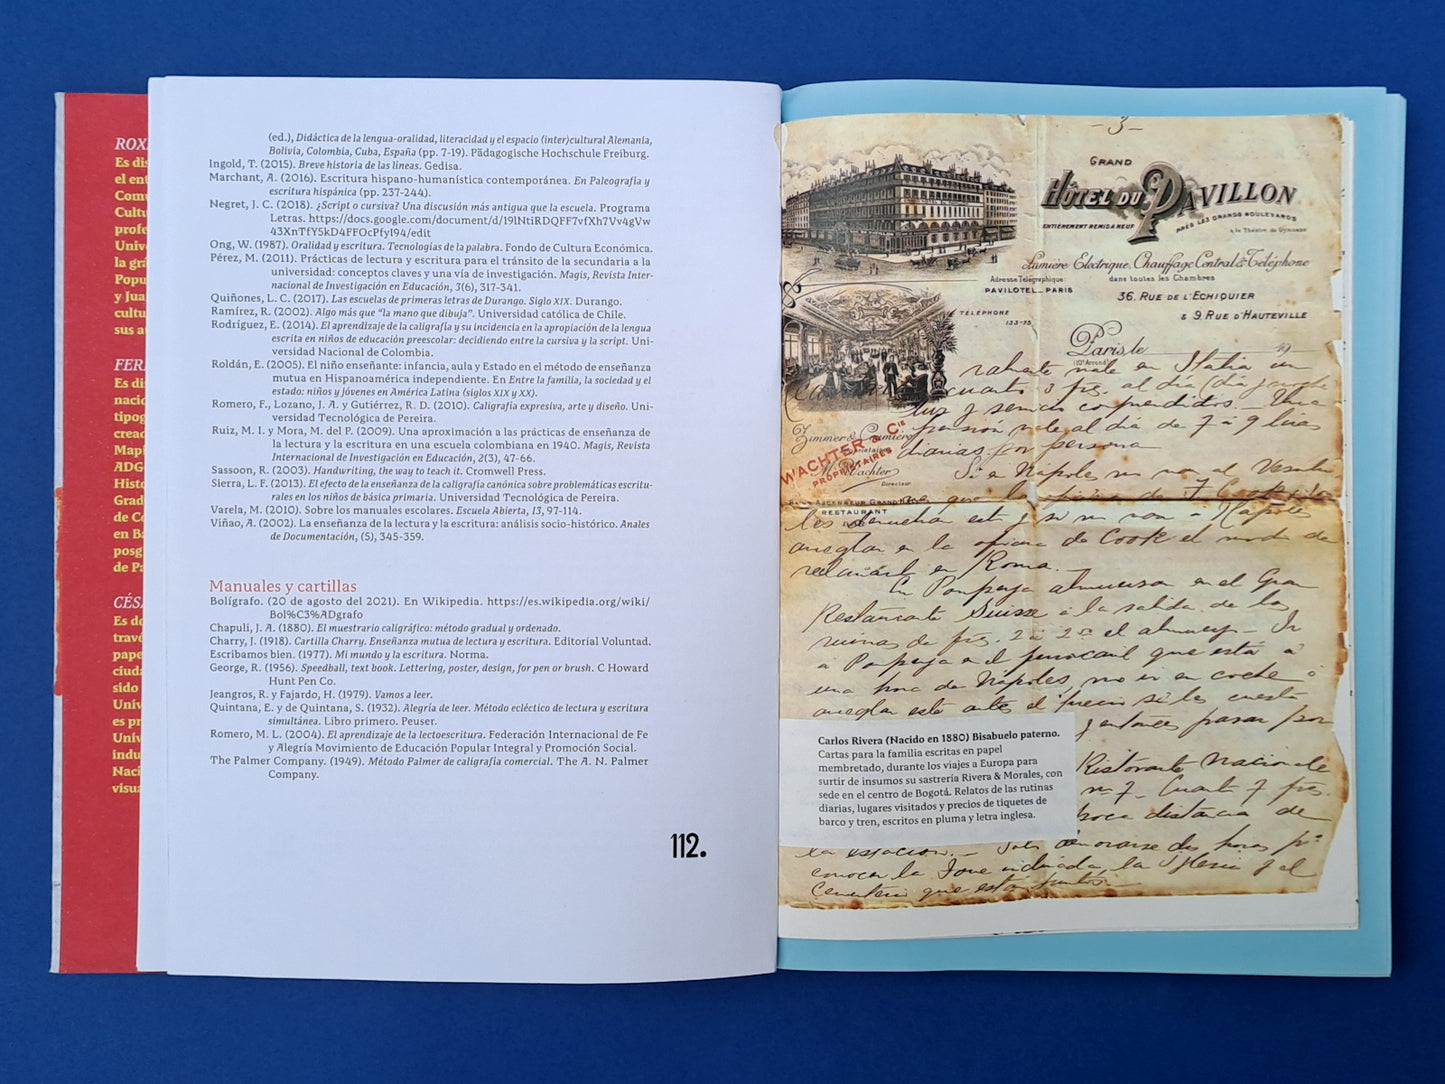 ROX
Es dis
el ent
Comu
Cultu
profe
Unive
la grá
Popu
y Jua
cultu
sus a
FER
Es dis
nacio
tipog
cread
Mapl
ADG
Histo
Grad
de Co
en Ba
posg
de Pa
CÉSA
Es do
travé
pape
ciuda
sido
Univ
es pr
Univ
indu
Naci
visua
(ed.), Didáctica de la lengua-oralidad, literacidad y el espacio (inter)cultural Alemania,
Bolivia, Colombia, Cuba, España (pp. 7-19). Pädagogische Hochschule Freiburg.
Ingold, T. (2015). Breve historia de las líneas. Gedisa.
Marchant, A. (2016). Escritura hispano-humanística contemporánea. En Paleografía y
escritura hispánica (pp. 237-244).
Negret, J. C. (2018). ¿Script o cursiva? Una discusión más antigua que la escuela. Programa
Letras. https://docs.google.com/document/d/19lNtiRDQFF7vfXh7Vv4gVw
43XnTfY5kD4FFOcPfyI94/edit
Ong, W. (1987). Oralidad y escritura. Tecnologías de la palabra. Fondo de Cultura Económica.
Pérez, M. (2011). Prácticas de lectura y escritura para el tránsito de la secundaria a la
universidad: conceptos claves y una vía de investigación. Magis, Revista Inter-
nacional de Investigación en Educación, 3(6), 317-341.
Quiñones, L. C. (2017). Las escuelas de primeras letras de Durango. Siglo XIX. Durango.
Ramírez, R. (2002). Algo más que “la mano que dibuja”. Universidad católica de Chile.
Rodríguez, E. (2014). El aprendizaje de la caligrafía y su incidencia en la apropiación de la lengua
escrita en niños de educación preescolar: decidiendo entre la cursiva y la script. Uni-
versidad Nacional de Colombia.
Roldán, E. (2005). El niño enseñante: infancia, aula y Estado en el método de enseñanza
mutua en Hispanoamérica independiente. En Entre la familia, la sociedad y el
estado: niños y jóvenes en América Latina (siglos XIX y XX).
Romero, F., Lozano, J. A. y Gutiérrez, R. D. (2010). Caligrafía expresiva, arte y diseño. Uni-
versidad Tecnológica de Pereira.
Ruiz, M. I. y Mora, M. del P. (2009). Una aproximación a las prácticas de enseñanza de
la lectura y la escritura en una escuela colombiana en 1940. Magis, Revista
Internacional de Investigación en Educación, 2(3), 47-66.
Sassoon, R. (2003). Handwriting, the way to teach it. Cromwell Press.
Sierra, L. F. (2013). El efecto de la enseñanza de la caligrafía canónica sobre problemáticas escritu-
rales en los niños de básica primaria. Universidad Tecnológica de Pereira.
Varela, M. (2010). Sobre los manuales escolares. Escuela Abierta, 13, 97-114.
Viñao, A. (2002). La enseñanza de la lectura y la escritura: análisis socio-histórico. Anales
de Documentación, (5), 345-359.
Manuales y cartillas
Bolígrafo. (20 de agosto del 2021). En Wikipedia. https://es.wikipedia.org/wiki/
Bol%C3%ADgrafo
Chapuli, J. A. (1880). El muestrario caligráfico: método gradual y ordenado.
Charry, J. (1918). Cartilla Charry. Enseñanza mutua de lectura y escritura. Editorial Voluntad.
Escribamos bien. (1977). Mi mundo y la escritura. Norma.
George, R. (1956). Speedball, text book. Lettering, poster, design, for pen or brush. C Howard
Hunt Pen Co.
Jeangros, R. y Fajardo, H. (1979). Vamos a leer.
Quintana, E. y de Quintana, S. (1932). Alegría de leer. Método ecléctico de lectura y escritura
simultánea. Libro primero. Peuser.
Romero, M. L. (2004). El aprendizaje de la lectoescritura. Federación Internacional de Fe
y Alegría Movimiento de Educación Popular Integral y Promoción Social.
The Palmer Company. (1949). Método Palmer de caligrafía comercial. The A. N. Palmer
Company.
112.
-3-
GRAND
HÔTEL DU PAVILLON
ENTIÈREMENT REMIS A NEUF
PRÈS LES GRANDS BOULEVARDS
& le Théâtre du Gymnase
Lumière Electrique, Chauffage Central & Téléphone
dans toutes les Chambres
Adresse Télégraphique
PAVILOTEL-PARIS
36, RUE DE L'ECHIQUIER
& 9, RUE D'HAUTEVILLE
TÉLÉPHONE
133-75
Paris, le 19
(10e Arrond)
vale en Italia un
cuarto 3 frs. al dia
luz y servicio comprendidos. Una
pensión vale al dia de 7 a 9 liras
diarias por persona
Zimmer & Cumiery
WACHTER & Cie
PROPRIETAIRES
Wachter
Directeur
RESTAURANT
Si a Napoles no van al Vesubio
y si no van a Napoles
arreglar en la oficina de Cook el modo de
en Roma.
En Pompeya almuerzan en el Gran
Restaurante Suisse a la salida de las
ruinas de frs. el almuerzo
a Pompeya en el ferrocarril que está a
una hora de Napoles, no ir en coche o
arreglar este antes el precio si les cuesta
entonces pasar por
Ristorante Nacionale
nº 7 Cuarto 7 frs.
poca distancia de
la estacion. demorarse dos horas pa
conocer la la Iglesia y el
Cementerio que están juntos
Carlos Rivera (Nacido en 1880) Bisabuelo paterno.
Cartas para la familia escritas en papel
membretado, durante los viajes a Europa para
surtir de insumos su sastrería Rivera & Morales, con
sede en el centro de Bogotá. Relatos de las rutinas
diarias, lugares visitados y precios de tiquetes de
barco y tren, escritos en pluma y letra inglesa.